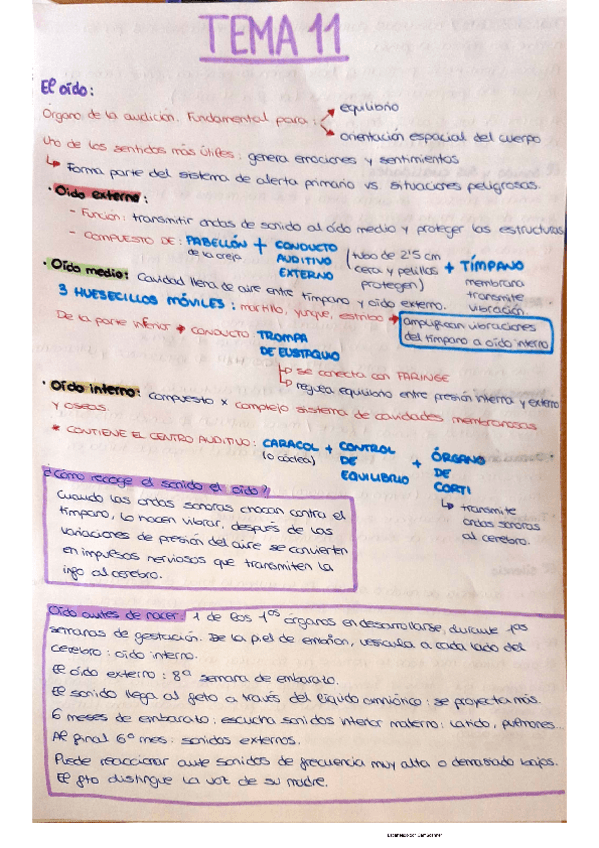 TEMA 11
El oído:
Órgano de la audición. Fundamental para: → equilibrio
→ orientación espacial del cuerpo
Uno de los sentidos más útiles: genera emociones y sentimientos
↳ Forma parte del sistema de alerta primario vs. situaciones peligrosas.
· Oido externo:
- Función: transmitir ondas de sonido al oído medio y proteger las estructuras
- COMPUESTO DE: PABELLÓN de la oreja + CONDUCTO AUDITIVO EXTERNO (tubo de 2'5 cm cera y pelillos protegen) + TÍMPANO membrana transmite vibración.
· Oído medio: Cavidad llena de aire entre tímpano y oído externo.
3 HUESECILLOS MÓVILES: martillo, yunque, estribo → amplifican vibraciones del tímpano a oído interno
De la parte inferior → CONDUCTO: TROMPA DE EUSTAQUIO
↳ se conecta con FARINGE
↳ regula equilibrio entre presión interna y externa
· Oído interno: compuesto x complejo sistema de cavidades membranosas
y óseas.
* CONTIENE EL CENTRO AUDITIVO: CARACOL (o cóclea) + CONTROL DE EQUILIBRIO + ÓRGANO DE CORTI
↳ transmite ondas sonoras al cerebro.
¿Cómo recoge el sonido el oído?
Cuando las ondas sonoras chocan contra el
tímpano, lo hacen vibrar, después de las
variaciones de presión del aire se convierten
en impulsos nerviosos que transmiten la
info al cerebro.
Oído antes de nacer: 1 de los 1os órganos en desarrollarse, durante 1as
semanas de gestación. De la piel de embrión, vesícula a cada lado del
cerebro: oído interno.
El oído externo: 8ª semana de embarazo.
El sonido llega al feto a través del líquido amniótico: se proyecta más.
6 meses de embarazo: escucha sonidos interior materno: latido, pulmones...
Al final 6º mes: sonidos externos.
Puede reaccionar ante sonidos de frecuencia muy alta o demasiado bajos.
El fto distingue la voz de su madre.